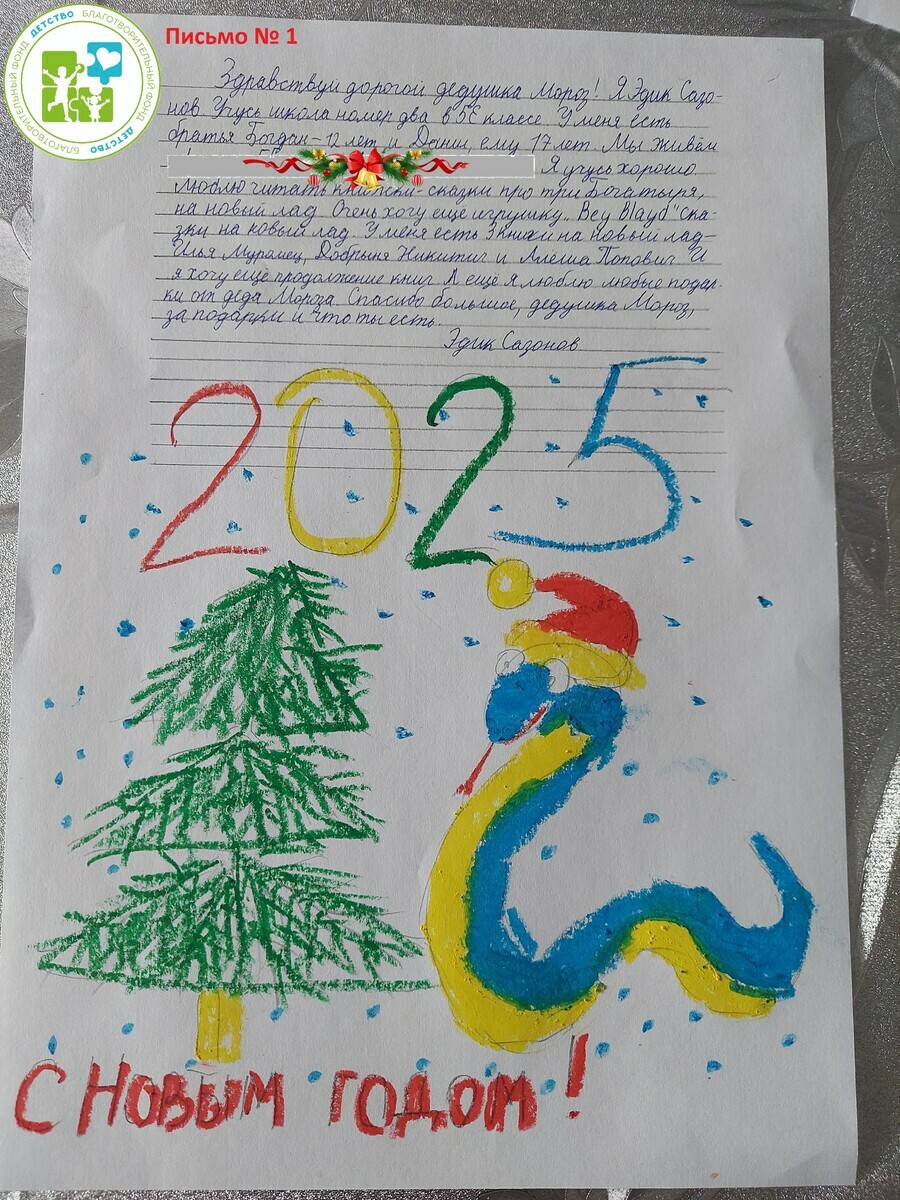 БЛАГОТВОРИТЕЛЬНЫЙ ФОНД ДЕТСТВО БЛАГОТВОРИТЕЛЬНЫЙ ФОНД ДЕТСТВО
Письмо № 1
Здравствуй дорогой дедушка Мороз! Я Эдик Сазо-
нов. Учусь школа номер два в 5Е классе. У меня есть
братья Богдан - 12 лет и Данил, ему 17 лет. Мы живём
Я учусь хорошо
люблю читать книжки - сказки про три Богатыря,
на новый лад. Очень хочу еще игрушку „Bey Blayd" ска-
зки на новый лад. У меня есть 3 книжки на новый лад -
Илья Муромец, Добрыня Никитич и Алёша Попович. И
я хочу ещё продолжение книг. А ещё я люблю любые подар-
ки от деда Мороза. Спасибо большое, дедушка Мороз,
за подарки и что ты есть.
Эдик Сазонов
2025
С НОВЫМ ГОДОМ!